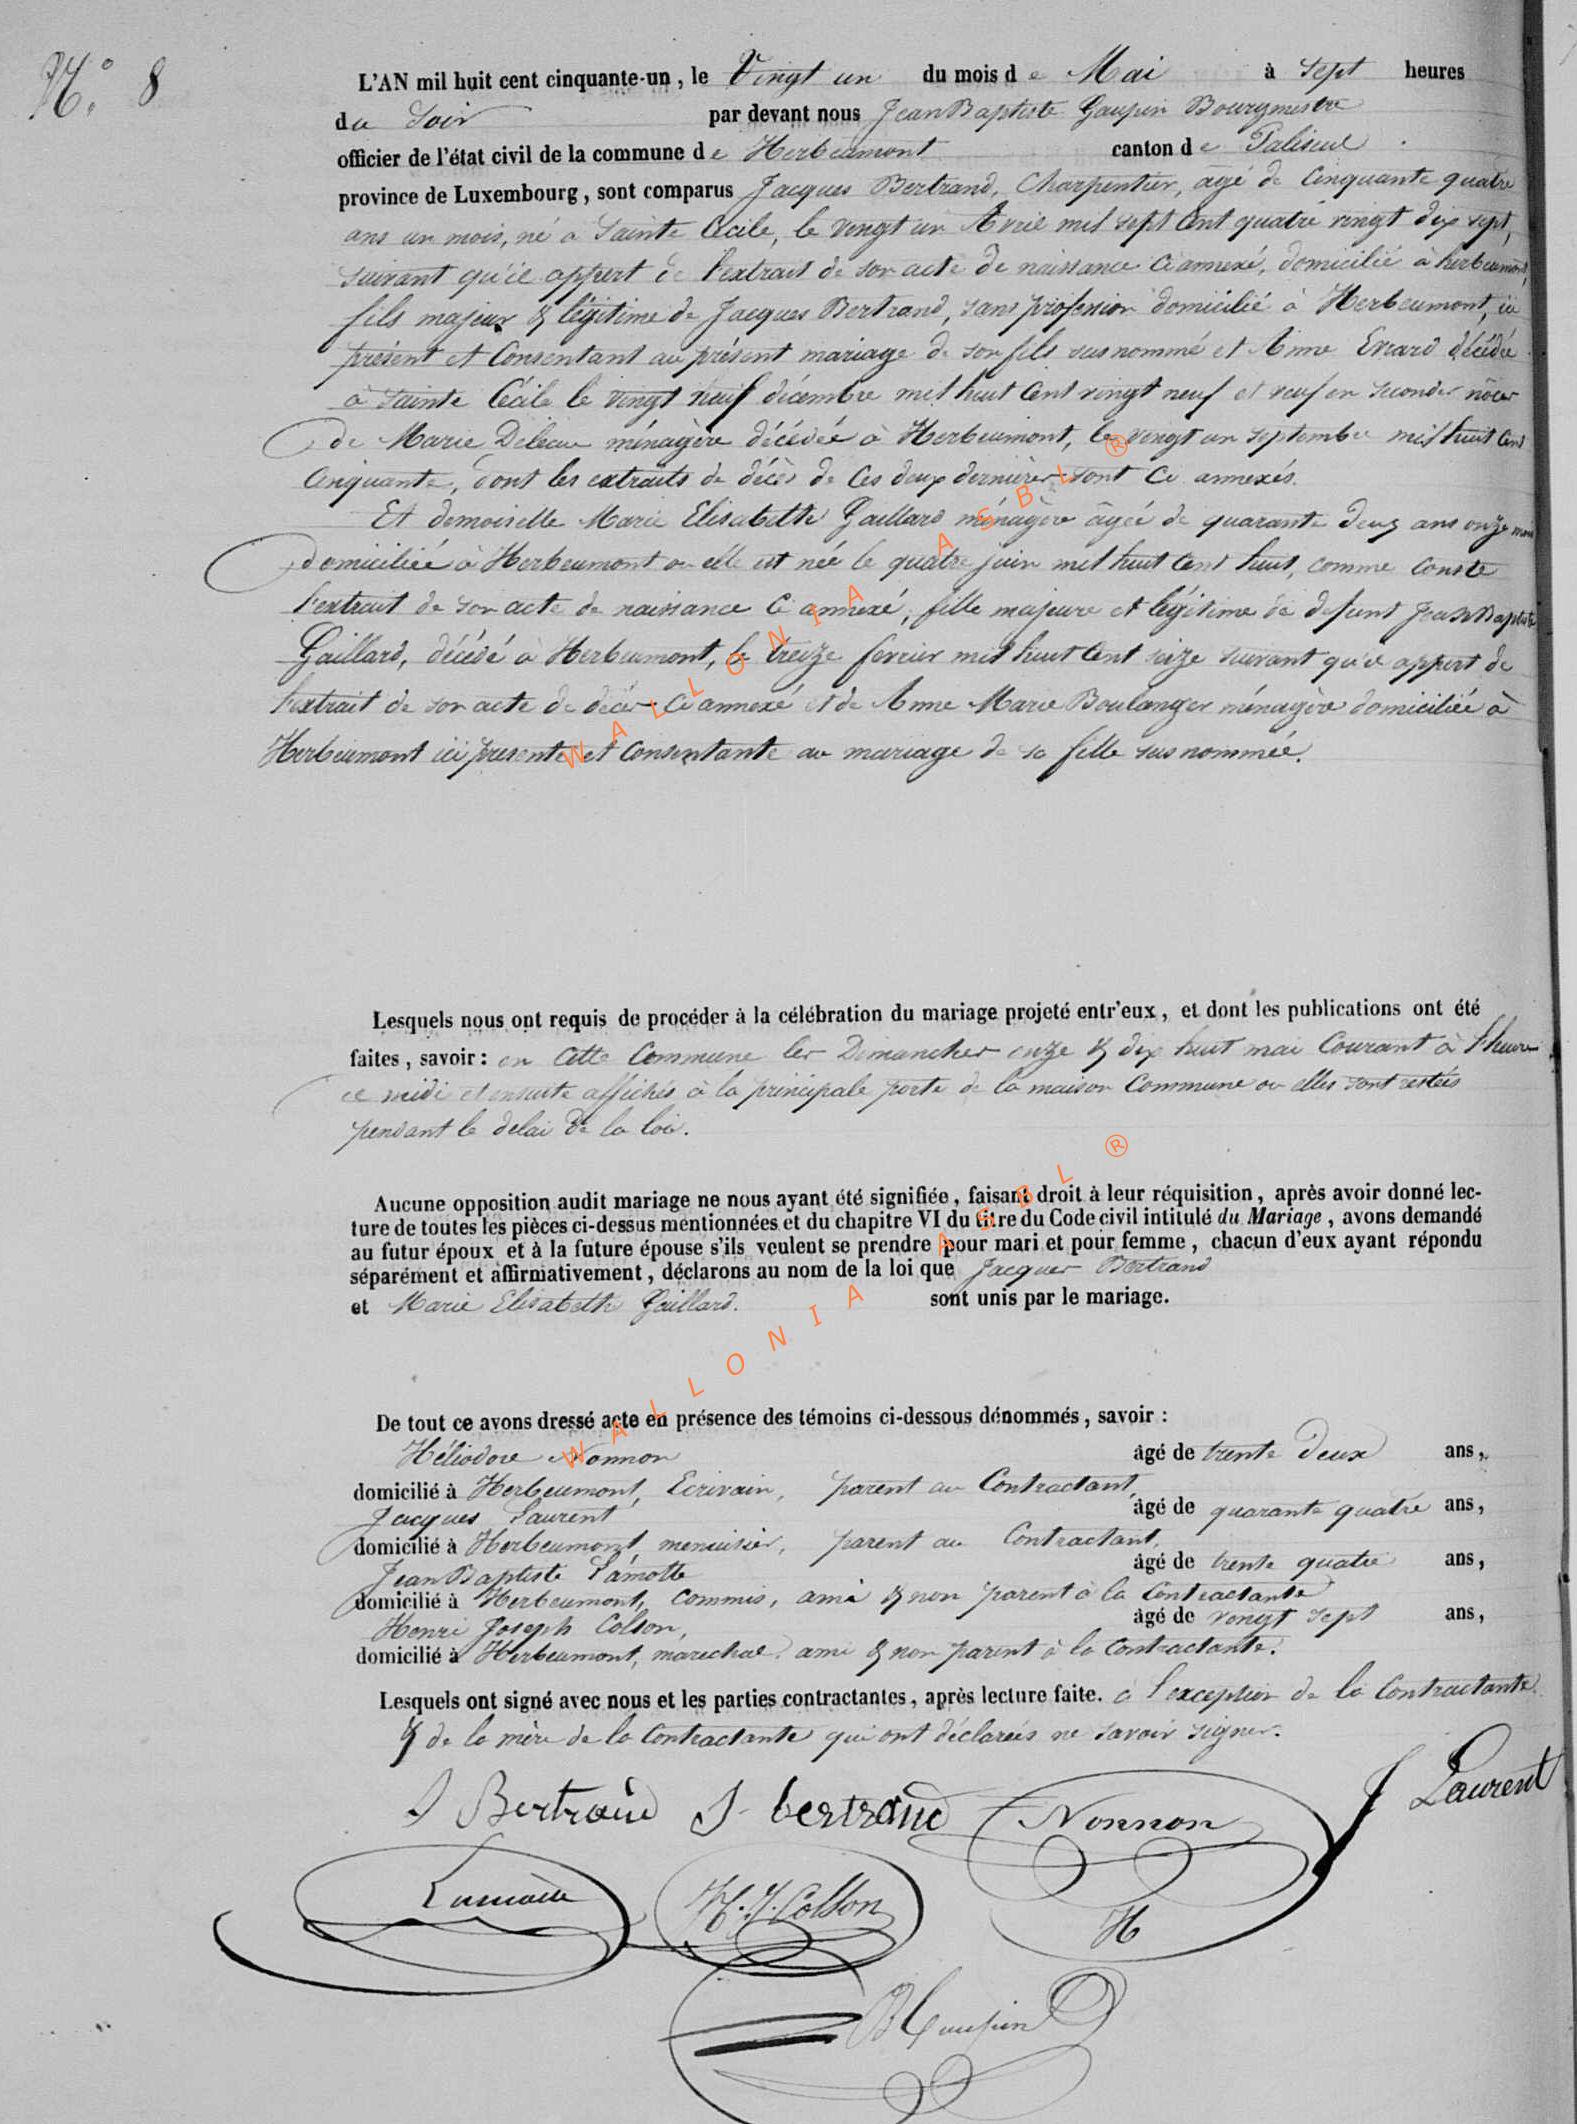 N.° 8
L'AN mil huit cent cinquante-un, le Vingt un du mois de Mai à sept heures
du Soir par devant nous Jean Baptiste Gaupin Bourgmestre
officier de l'état civil de la commune de Herbeumont canton de Paliseul.
province de Luxembourg, sont comparus Jacques Bertrand, Charpentier, agé de Cinquante quatre
ans un mois, né à Sainte Cécile, le vingt un Avril mil sept Cent quatre vingt dix sept,
suivant qu'il appert de l'extrait de son acte de naissance Ci annexé, domicilié à herbeumont,
fils majeur & légitime de Jacques Bertrand, sans profession domicilié à Herbeumont, ici
présent et Consentant au présent mariage de son fils susnommé et Anne Evrard décédée
à Sainte Cécile le vingt neuf décembre mil huit Cent vingt neuf et veuf en secondes nôces
de Marie Deleau ménagère décédée à Herbeumont, le vingt un septembre mil huit Cent
Cinquante, dont les extraits de décès de Ces deux dernières sont Ci annexés.
Et demoiselle Marie Elisabeth Gaillard ménagère âgée de quarante deux ans onze mois
domiciliée à Herbeumont ou elle est née le quatre juin mil huit Cent huit, comme Conste
l'extrait de son acte de naissance Ci annexé, fille majeure et légitime de defunt Jean Baptiste
Gaillard, décédé à Herbeumont, le treize fevrier mil huit Cent seize suivant qu'il appert de
l'extrait de son acte de décès Ci annexé et de Anne Marie Boulanger ménagère domiciliée à
Herbeumont ici presente et Consentante au mariage de sa fille susnommée.
Lesquels nous ont requis de procéder à la célébration du mariage projeté entr'eux, et dont les publications ont été
faites, savoir: en Cette Commune les Dimanches onze & dix huit mai Courant à l'heure
de midi et ensuite affichés à la principale porte de la maison Commune ou elles sont restées
pendant le delai de la loi.
Aucune opposition audit mariage ne nous ayant été signifiée, faisant droit à leur réquisition, après avoir donné lec-
ture de toutes les pièces ci-dessus mentionnées et du chapitre VI du titre du Code civil intitulé du Mariage, avons demandé
au futur époux et à la future épouse s'ils veulent se prendre pour mari et pour femme, chacun d'eux ayant répondu
séparément et affirmativement, déclarons au nom de la loi que Jacques Bertrand
et Marie Elisabeth Gaillard. sont unis par le mariage.
De tout ce avons dressé acte en présence des témoins ci-dessous dénommés, savoir:
Héliodore Nonnon âgé de trente deux ans,
domicilié à Herbeumont, Ecrivain, parent au Contractant,
Jacques Laurent âgé de quarante quatre ans,
domicilié à Herbeumont, menuisier, parent au Contractant,
Jean Baptiste Lamotte âgé de trente quatre ans,
domicilié à Herbeumont, Commis, ami & non parent à la Contractante
Henri Joseph Colson, âgé de vengt sept ans,
domicilié à Herbeumont, marechal, ami & non parent à la Contractante.
Lesquels ont signé avec nous et les parties contractantes, après lecture faite. à l'exception de la Contractante
& de la mère de la Contractante qui ont déclarées ne savoir signer.
J Bertrand J bertrand Nonnon J Laurent
Lamotte H. J. Colson H
WALLONIA ASBL ®
WALLONIA ASBL ®